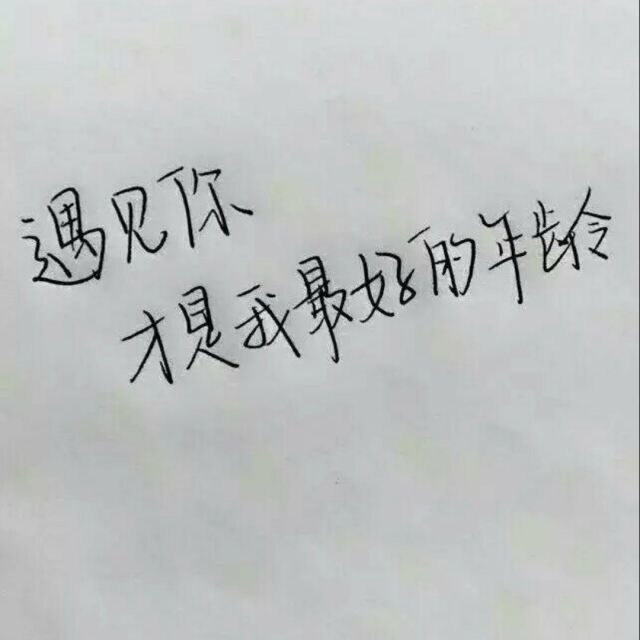 遇见你
才是我最好的年龄